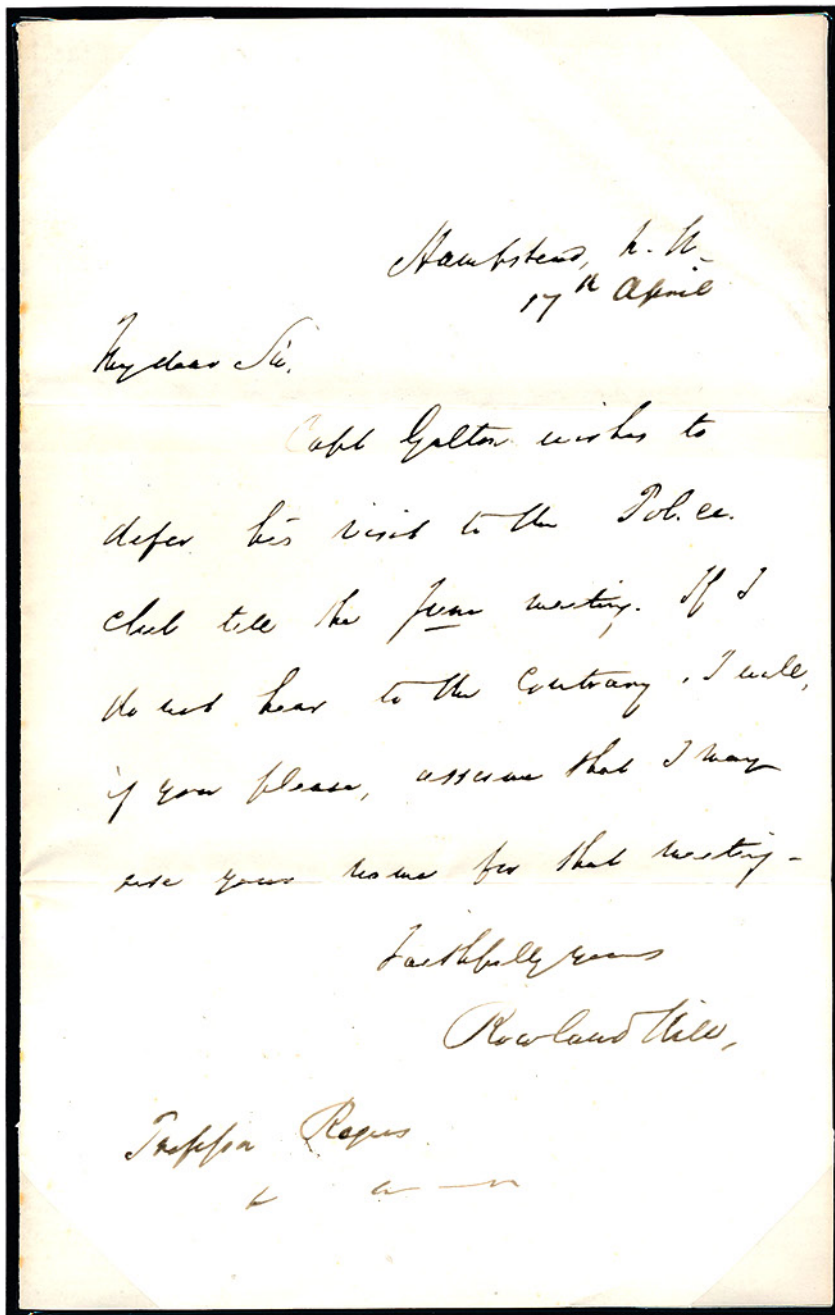 Hampstead, N.W.
17th April
My dear Sir,
Capt Galton wishes to
defer his visit to the Pol. Ec.
Club till the June meeting. If I
do not hear to the contrary, I will,
if you please, assume that I may
use your name for that meeting -
Faithfully yours
Rowland Hill,
Professor Rogers